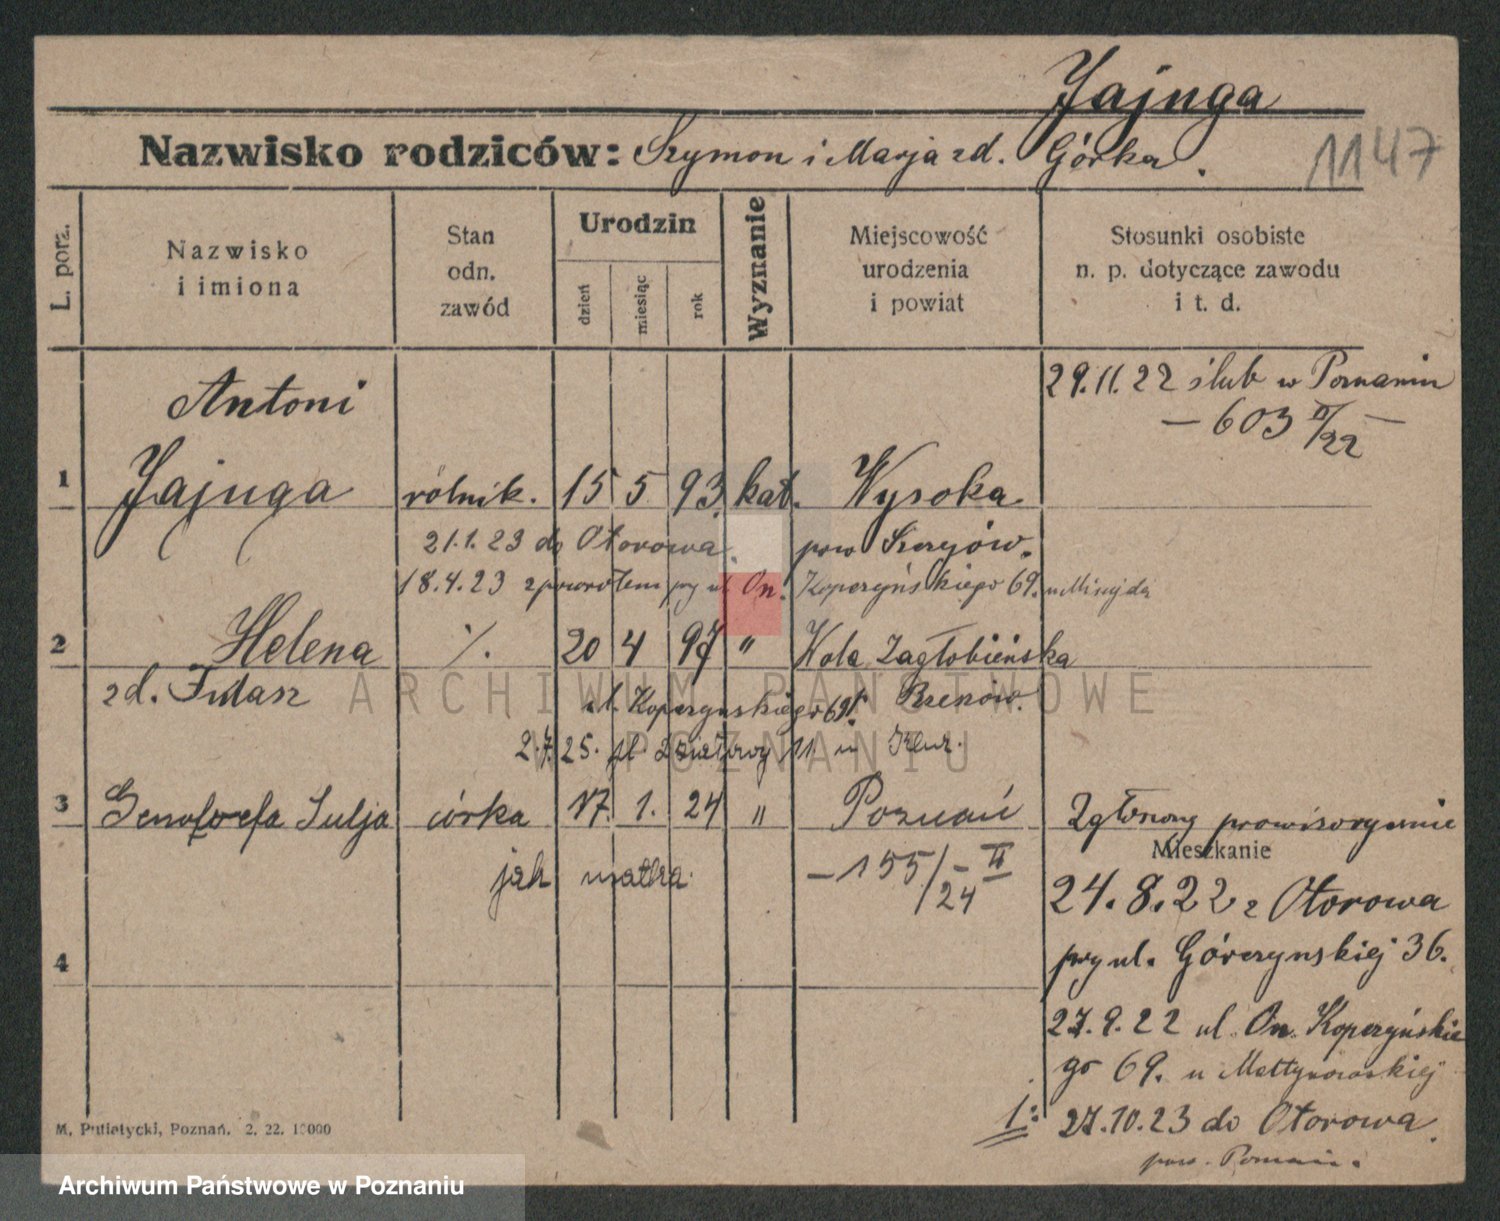 Jajuga
Nazwisko rodziców: Szymon i Marja zd. Górka.
1147
L. porz.
Nazwisko i imiona
Stan odn. zawód
Urodzin
dzień
miesiąc
rok
Wyznanie
Miejscowość urodzenia i powiat
Stosunki osobiste n. p. dotyczące zawodu i t. d.
29.11.22 ślub w Poznaniu
— 603 II/22 —
Antoni
1 Jajuga rolnik. 15 5 93. kat. Wysoka
21.1.23 do Otorowa. pow
18.4.23 zpowrotem przy ul. On. Kopczyńskiego 69. u
2 Helena ./. 20 4 97 " Wola Zagłobieńska
zd. Fudasz
ul. Kopczyńskiego 69
2.7.25. pl. Działowy 11 u
3 Genofewfa Julja córka 17. 1. 24 " Poznań Zgłoszony prowizorycznie
jak matka. — 155/24 — II
Mieszkanie
24.8.22 z Otorowa
przy ul. Górczynskiej 36.
4
27.9.22 ul. On. Kopczyńskie
go 69. u
1: 27.10.23 do Otorowa.
pow. Poznań.
M. Putiatycki, Poznań. 2. 22. 10000
ARCHIWUM PAŃSTWOWE
W POZNANIU
Archiwum Państwowe w Poznaniu